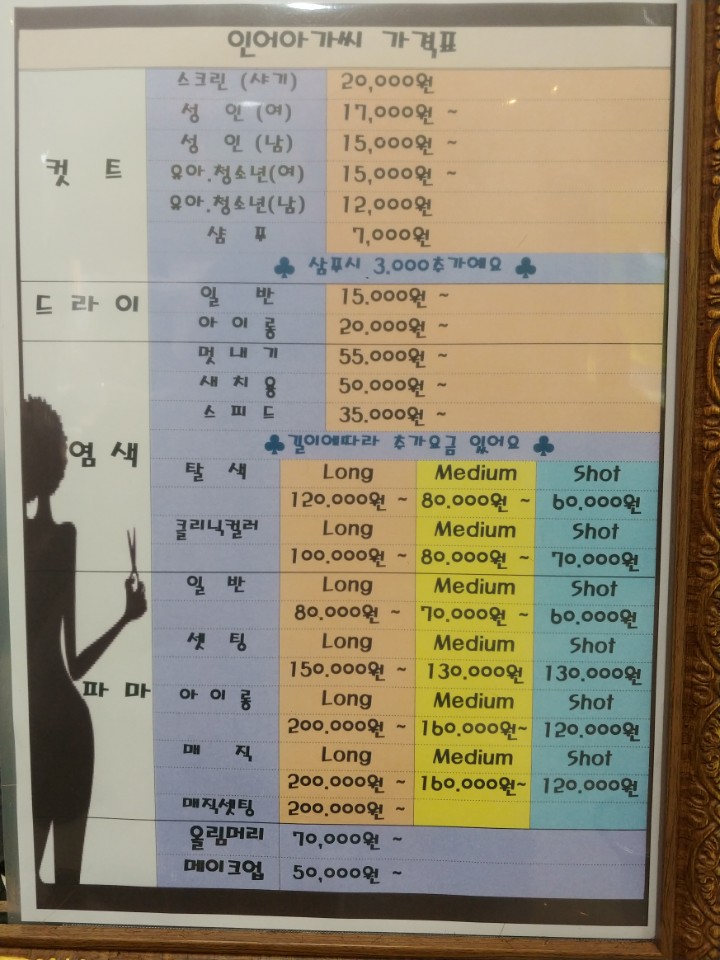 인어아가씨 가격표
컷 트
스크린 (샤기) 20,000원
성 인 (여) 17,000원 ~
성 인 (남) 15,000원 ~
유아.청소년(여) 15,000원 ~
유아.청소년(남) 12,000원
샴 푸 7,000원
♣ 샴푸시 3.000추가예요 ♣
드 라 이
일 반 15.000원 ~
아 이 롱 20.000원 ~
염 색
멋 내 기 55.000원 ~
새 치 용 50.000원 ~
스 피 드 35.000원 ~
♣길이에따라 추가요금 있어요 ♣
탈 색 Long Medium Shot
120.000원 ~ 80.000원 ~ 60.000원
클리닉컬러 Long Medium Shot
100.000원 ~ 80.000원 ~ 70.000원
파 마
일 반 Long Medium Shot
80.000원 ~ 70.000원 ~ 60.000원
셋 팅 Long Medium Shot
150.000원 ~ 130.000원 130.000원
아 이 롱 Long Medium Shot
200.000원 ~ 160.000원~ 120.000원
매 직 Long Medium Shot
200.000원 ~ 160.000원~ 120.000원
매직셋팅 200.000원 ~
올림머리 70,000원 ~
메이크업 50,000원 ~